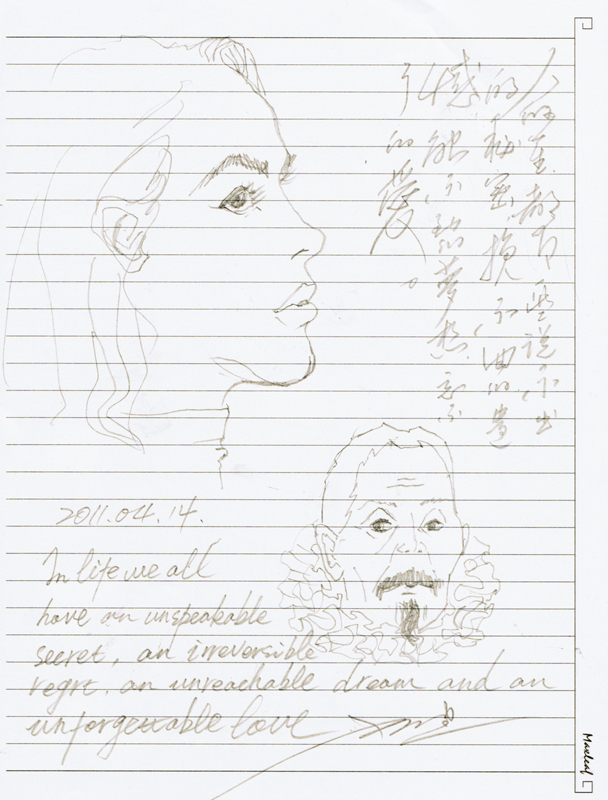 人的一生都有一些说不出
的秘密,挽不回的遗
憾,触不到的梦想,忘不
的爱。
2011.04.14.
In life we all
have an unspeakable
secret, an irreversible
regrt. an unreachable dream and an
unforgettable love
Maxleaf